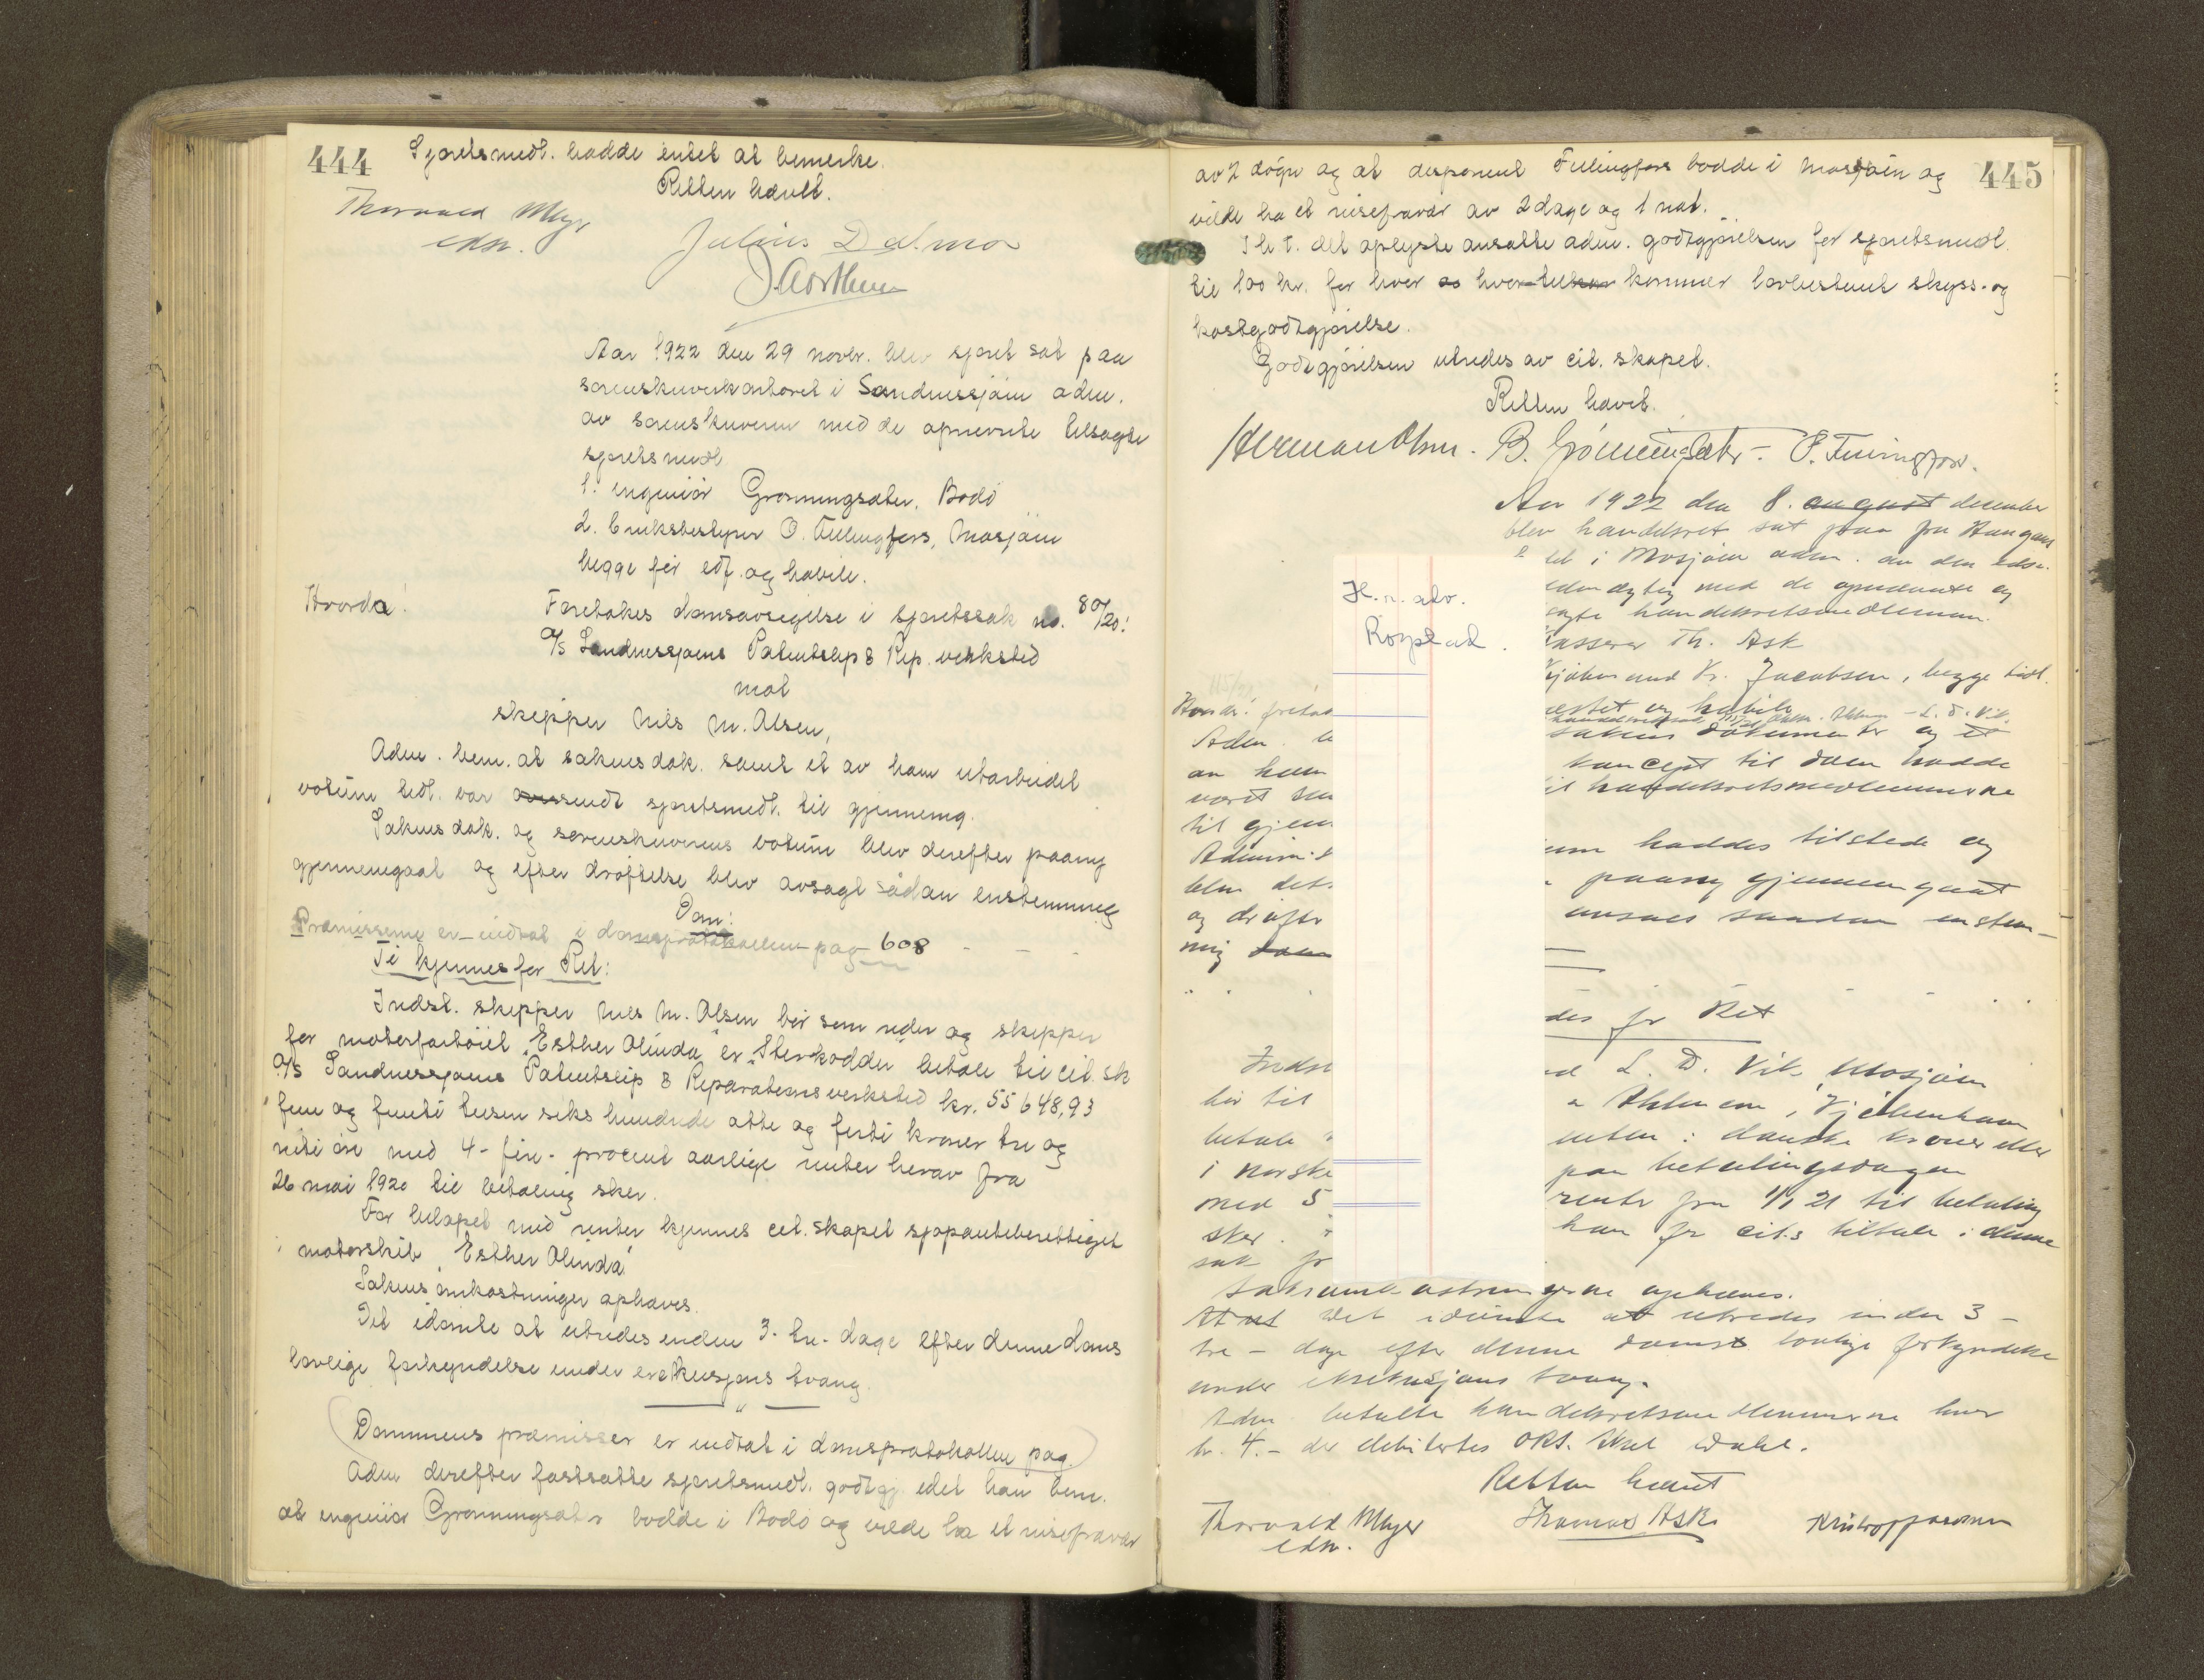 444
Sjøretsmedl. hadde intet at bemerke.
Retten hævet.
Thorvald Meyer
edsv.
Julius Dalmo
Aar 1922 den 29 novbr. blev sjøret sat paa
sorenskriverkontoret i Sandnessjøen adm.
av sorenskriveren med de opnævnte tilsagte
sjøretsmedl
1. ingeniør Grønningsæter, Bodø
2. bruksbestyrer O. Fellingfors, Mosjøen
begge før edf. og habile.
Hvorda:
Foretokes domsavsigelse i sjøretssak no. 80/20:
A/S Sandnessjøens Patentslip & Rep. verksted
mot
skipper Nils M. Olsen,
Adm. bem. at sakens dok. samt et av ham utarbeidet
votum hadde var sendt sjøretsmedl. til gjennemg.
Sakens dok. og sorenskriverens votum blev derefter paany
gjennemgaat og efter drøftelse blev avsagt sådan enstemmig
Dom:
Præmisserne er indtat i domsprotokollen pag 608
Ti kjennes for Ret:
Indst. skipper Nils M. Olsen bør som reder og skipper
for motorfartøiet "Esther Olinda" ex "Sterkodder" betale til cit. sk
A/S Sandnessjøens Patentslip & Reparationsverksted kr. 55648,93
fem og femti tusen seks hundrede otte og førti kroner tre og
nitti øre med 4 - fire - procent aarlige renter herav fra
26 mai 1920 til betaling sker.
For beløpet med renter kjennes cit. skapet sjøpanteberettiget
i motorskib "Esther Olinda".
Sakens omkostninger ophæves.
Det idømte at utredes inden 3 - tre - dage efter denne doms
lovlige forkyndelse under exekusjons tvang.
Dommens præmisser er indtat i domsprotokollen pag.
Adm derefter fastsatte sjøretsmedl. godtgj. idet han bem.
at ingeniør Grønningsæter bodde i Bodø og vilde ha et reisefravær
445
av 2 døgn og at disponent Fellingfors bodde i Mosjøen og
vilde ha et reisefravær av 2 dage og 1 nat.
I h. t. det oplyste ansatte adm. godtgjørelsen for sjøretsmedl.
til 100 kr. for hver hvortil kommer lovbestemt skyss- og
kostgodtgjørelse.
Godtgjørelsen utredes av cit. skapet.
Retten hævet.
Herman Olsen. B. Grønningsæter - O. Fellingfors.
Aar 1922 den 8. august december
blev handelsret sat paa fru Haugans
i Mosjøen adm. av den edsv.
med de opnævnte og
handelsretsmedlemmer.
Kasserer Th. Ask
Kr. Jacobsen, begge tidl.
og habile
H.r. adv.
Roypstad.
Hvorda: foretok
sakens dokumenter og et
Adm. be
av ham
koncept til dom hadde
været sen
til handelsretsmedlemmerne
til gjen
Adminis
haddes tilstede og
blev det
paany gjennemgaat
og drøfte
avsaes saadan enstem-
mig dom
des for Ret
Indst
L. D. Vik Mosjøen
bør til
i Kjøbenhavn
betale
enten i danske kroner eller
i norske
paa betalingsdagen
med 5
rente fra 1/1 21 til betaling
sker.
han for cit.s tiltale i denne
sak fr
Saksomkostningerne ophæves.
Det idømte at utredes inden 3 -
tre - dage efter denne doms lovlige forkyndelse
under eksekusjons tvang.
Adm. betalte handelsretsmedlemmerne hver
kr. 4.- der debitertes ORS. Axel Dahl.
Retten hævet
Thorvald Meyer
edsv.
Thomas Ask